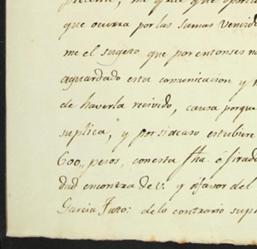 que ocurra por las sumas Venida
me el sugeto que por entonses n
aguardado esta comunicacion y
de haverla recivido, causa porque
suplica, y por si acaso estubiere
600, pesos, con esta fha. ó firad
dad encontra de V. y á favor del
Garcia Jaro: de lo contrario sup